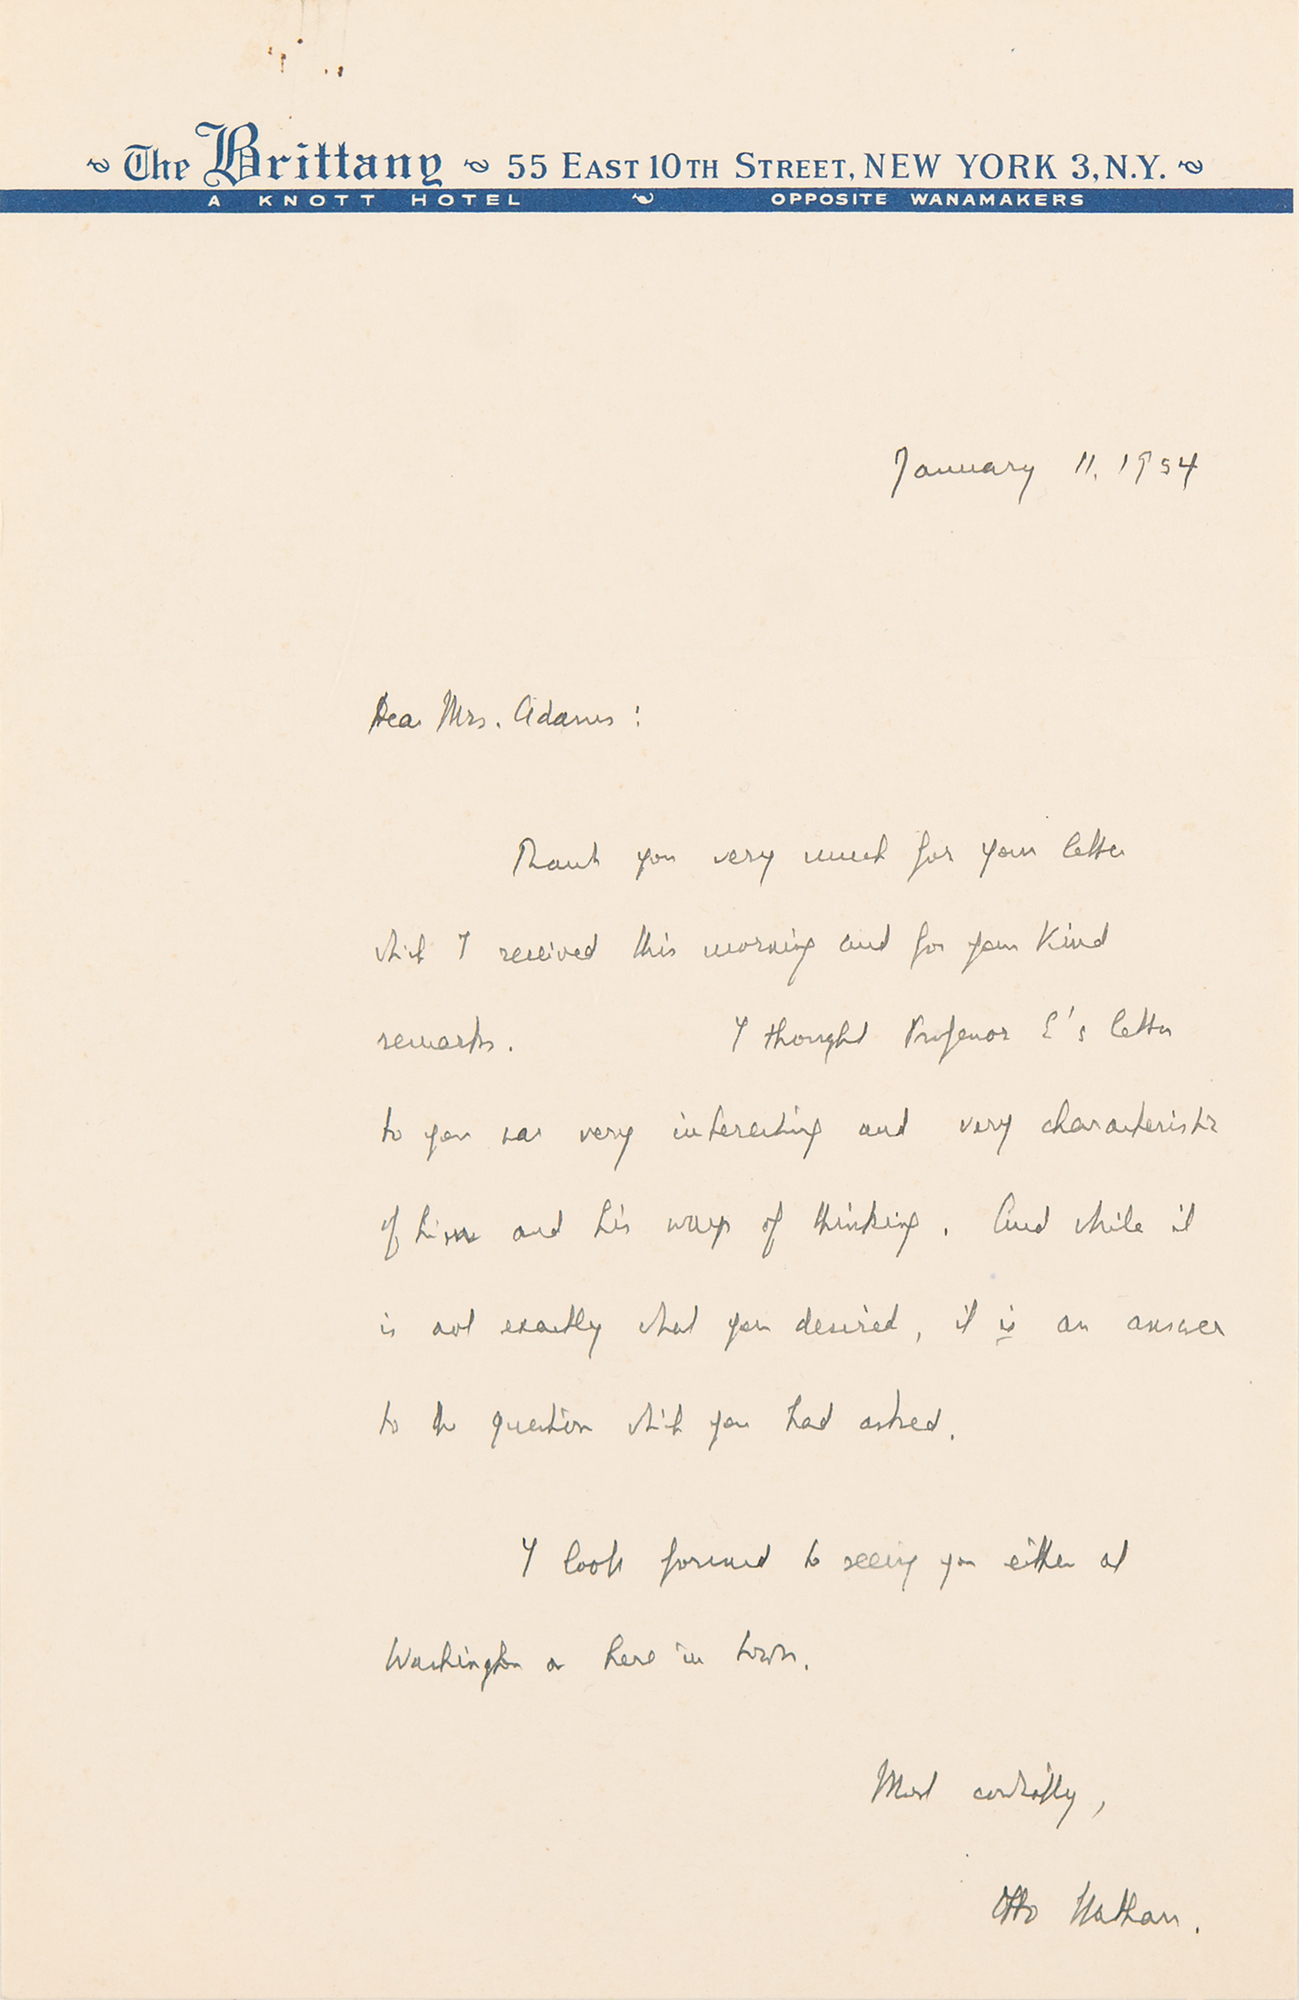 The Brittany 55 EAST 10TH STREET, NEW YORK 3, N.Y.
A KNOTT HOTEL OPPOSITE WANAMAKERS
January 11, 1954
Dear Mrs. Adams:
Thank you very much for your letter
which I received this morning and for your kind
remarks. I thought Professor E's letter
to you was very interesting and very characteristic
of him and his ways of thinking. And while it
is not exactly what you desired, it is an answer
to the question which you had asked.
I look forward to seeing you either at
Washington or here in town.
Most cordially,
Otto Nathan.